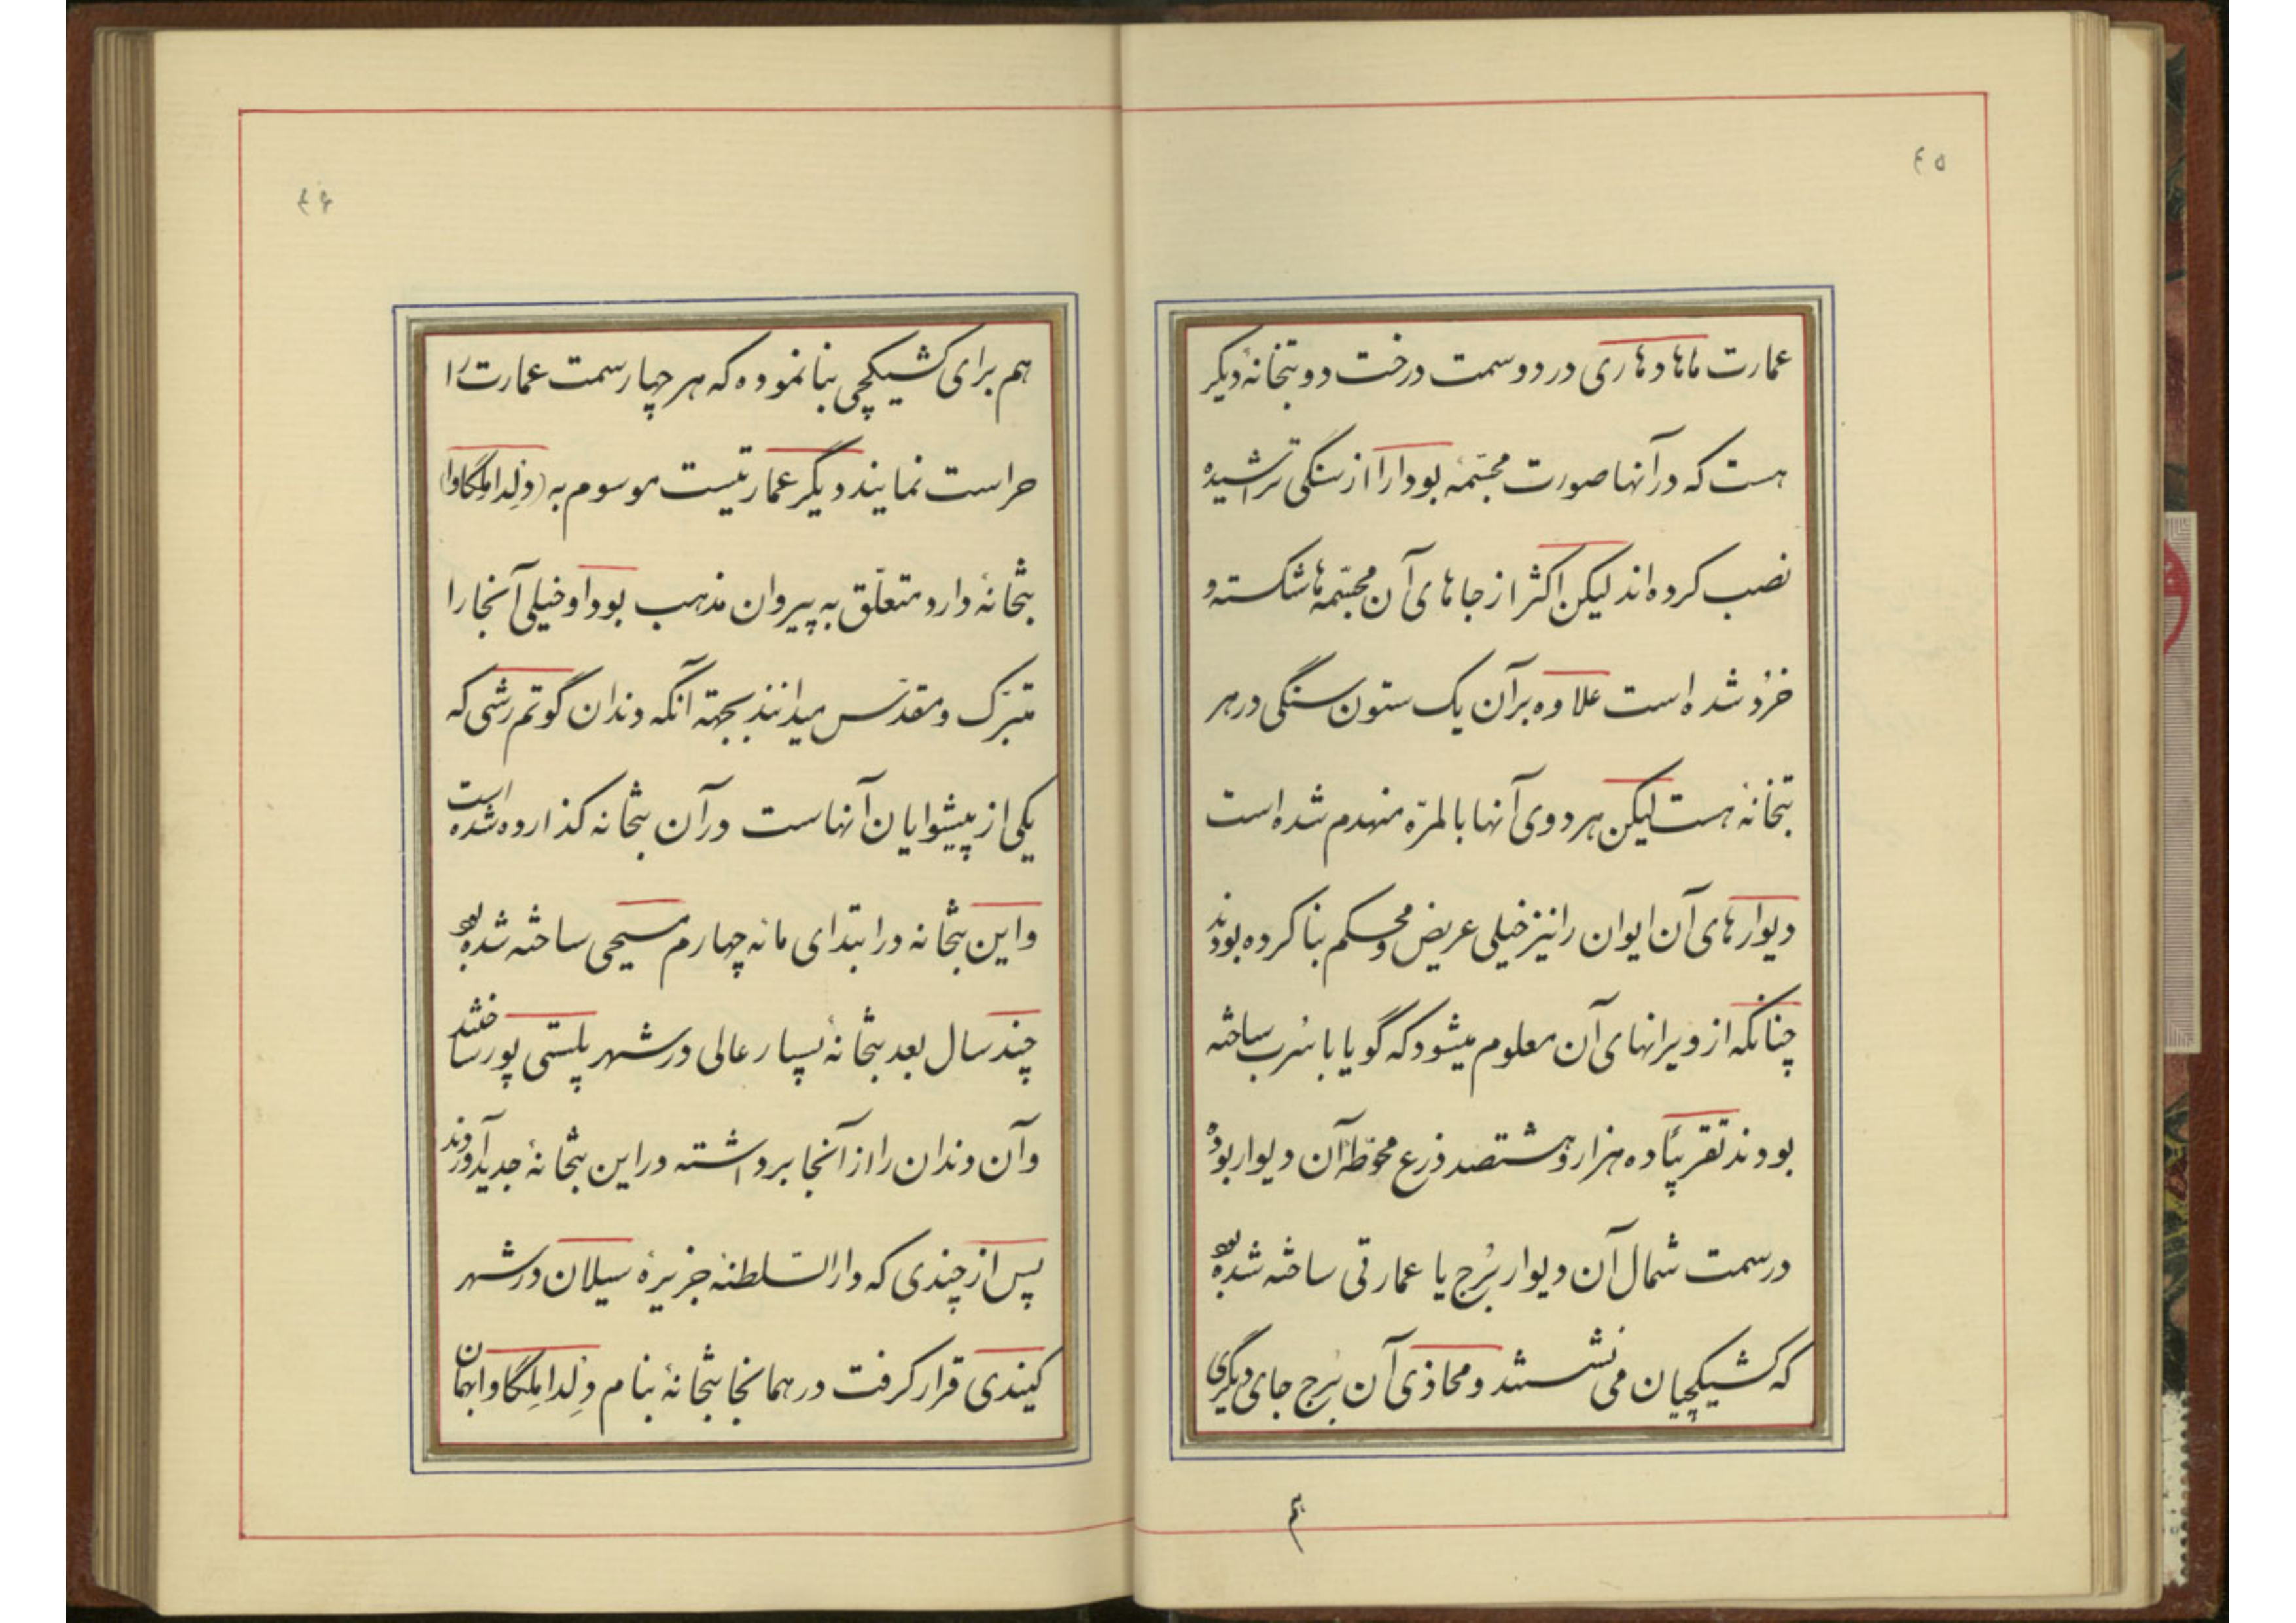 ۴۵
عمارت ماهادهاری در دو سمت درخت دو بتخانهٔ دیگر
هست که در آنها صورت مجسّمهٔ بودا را از سنگی تراشیده
نصب کرده‌اند لیکن اکثر از جاهای آن مجسّمه‌ها شکسته و
خُرد شده است علاوه بر آن یک ستون سنگی در هر
بتخانهٔ هست لیکن هر دوی آنها بالمرّه منهدم شده است
دیوارهای آن ایوان را نیز خیلی عریض و محکم بنا کرده بودند
چنانکه از ویرانهای آن معلوم میشود که گویا با سُرب ساخته
بودند تقریبًا ده هزار و هشتصد ذرع محوّطهٔ آن دیوار بوده
در سمت شمال آن دیوار بُرج یا عمارتی ساخته شده بود
که کشیکچیان می نشستند و محاذی آن بُرج جای دیگری
هم
۴۶
هم برای کشیکچی بنا نموده که هر چهار سمت عمارت را
حراست نمایند دیگر عمارتیست موسوم به (دِلداملگاوا)
بتخانهٔ دارد متعلّق به پیروان مذهب بودا و خیلی آنجا را
متبرّک و مقدّس میدانند بجهته آنکه دندان گوتم رشی که
یکی از پیشوایان آنهاست در آن بتخانه گذارده شده است
و این بتخانه در ابتدای مائه چهارم مسیحی ساخته شده بود
چند سال بعد بتخانهٔ بسیار عالی در شهر پلستی پور ساختند
و آن دندان را از آنجا برداشته در این بتخانهٔ جدید آوردند
پس از چندی که دارالسّلطنهٔ جزیرهٔ سیلان در شهر
کیندی قرار گرفت در همانجا بتخانهٔ بنام دِلداملِگاوا بهمان